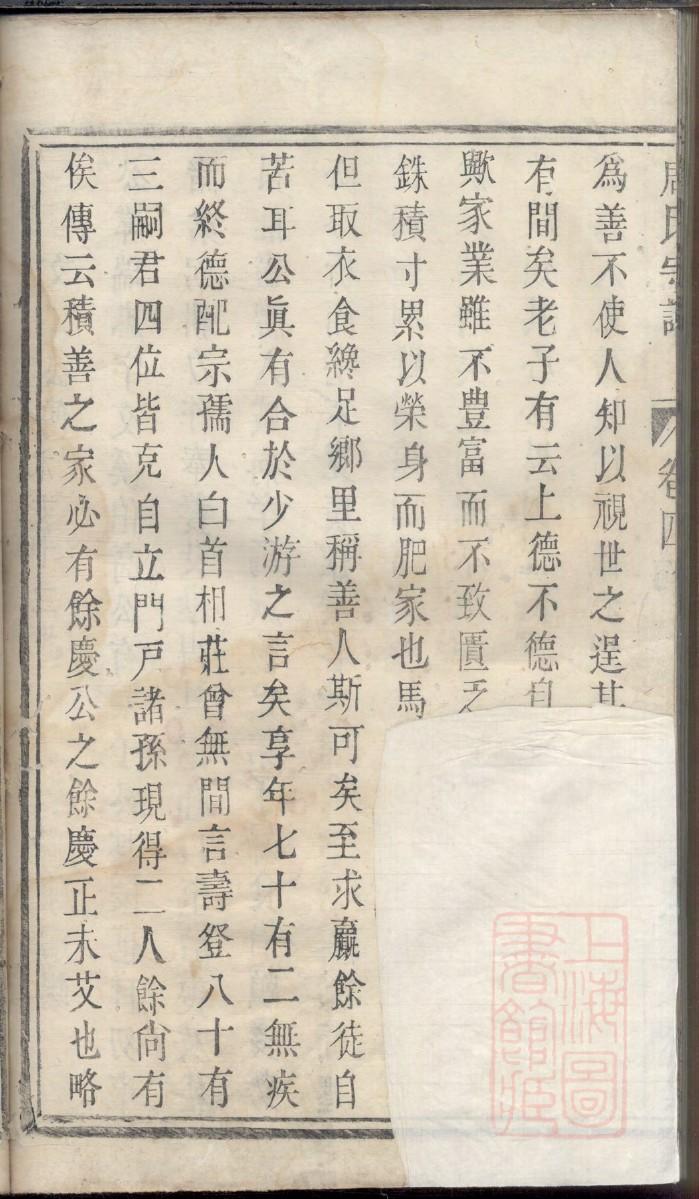 周氏宗譜 卷四
為善不使人知以視世之逞其
有間矣老子有云上德不德自
歟家業雖不豐富而不致匱乏
銖積寸累以榮身而肥家也馬
但取衣食纔足鄉里稱善人斯可矣至求贏餘徒自
苦耳公眞有合於少游之言矣享年七十有二無疾
而終德配宗孺人白首相莊曾無間言壽登八十有
三嗣君四位皆克自立門戸諸孫現得二人餘尙有
俟傳云積善之家必有餘慶公之餘慶正未艾也略
上海圖書館藏